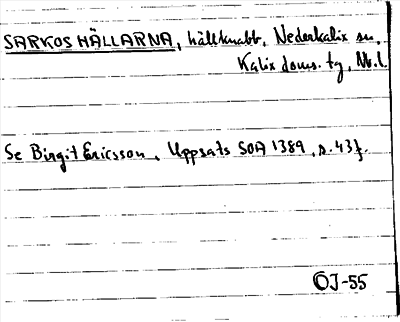 SARKOS HÄLLARNA, hällknabb, Nederkalix sn,
Kalix doms. tg, Nb.l.
Se Birgit Ericsson, Uppsats SOA 1389, s. 43f.
OJ-55